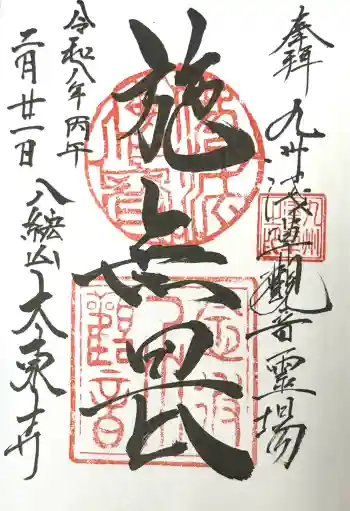 奉拝 九州 観音霊場
施無畏
令和八年丙午
二月廿一日 八紘山 大東寺